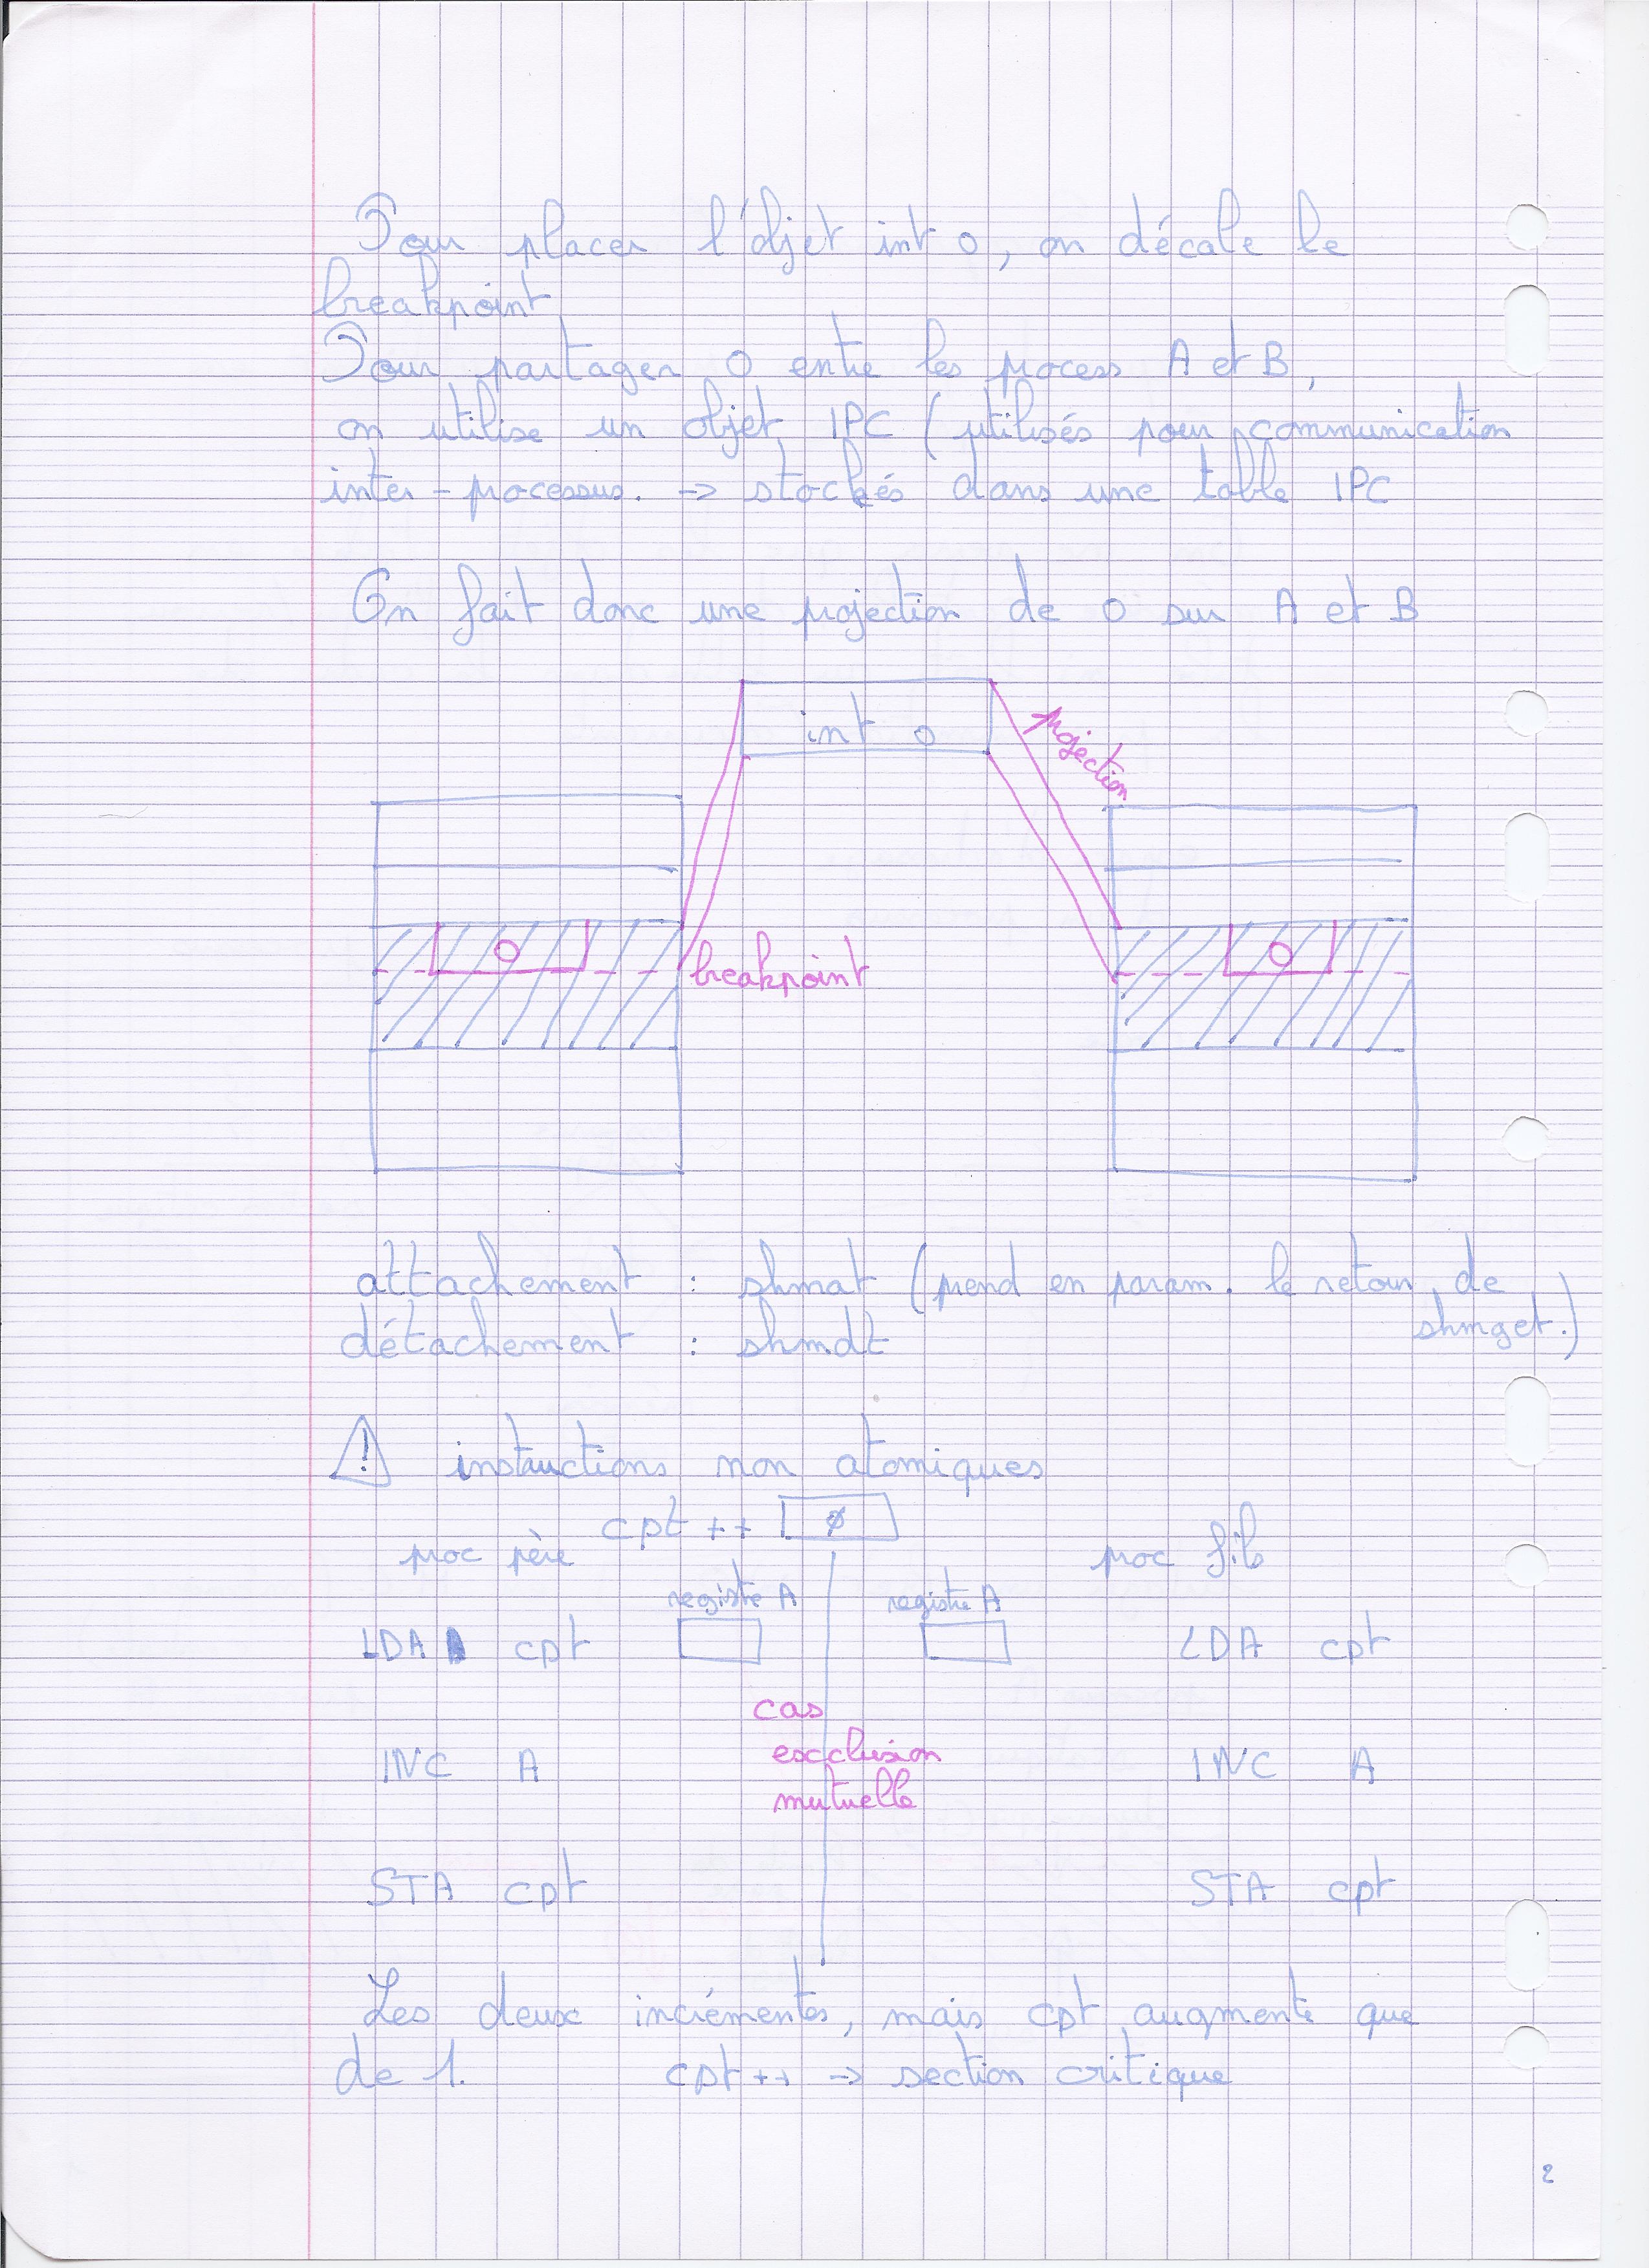 Pour placer l'objet int o, on décale le
breakpoint
Pour partager O entre les process A et B,
on utilise un objet IPC (utilisés pour communication
inter-processus. -> stockés dans une table IPC
On fait donc une projection de o sur A et B
int o
projection
O
O
breakpoint
attachement : shmat (prend en param. le retour de
shmget.)
détachement : shmdt
! instructions non atomiques
cpt ++ ø
proc père proc fils
registre A registre A
LDA cpt LDA cpt
cas
exclusion
mutuelle
INC A INC A
STA cpt STA cpt
Les deux incrémentes, mais cpt augmente que
de 1. cpt++ -> section critique
2